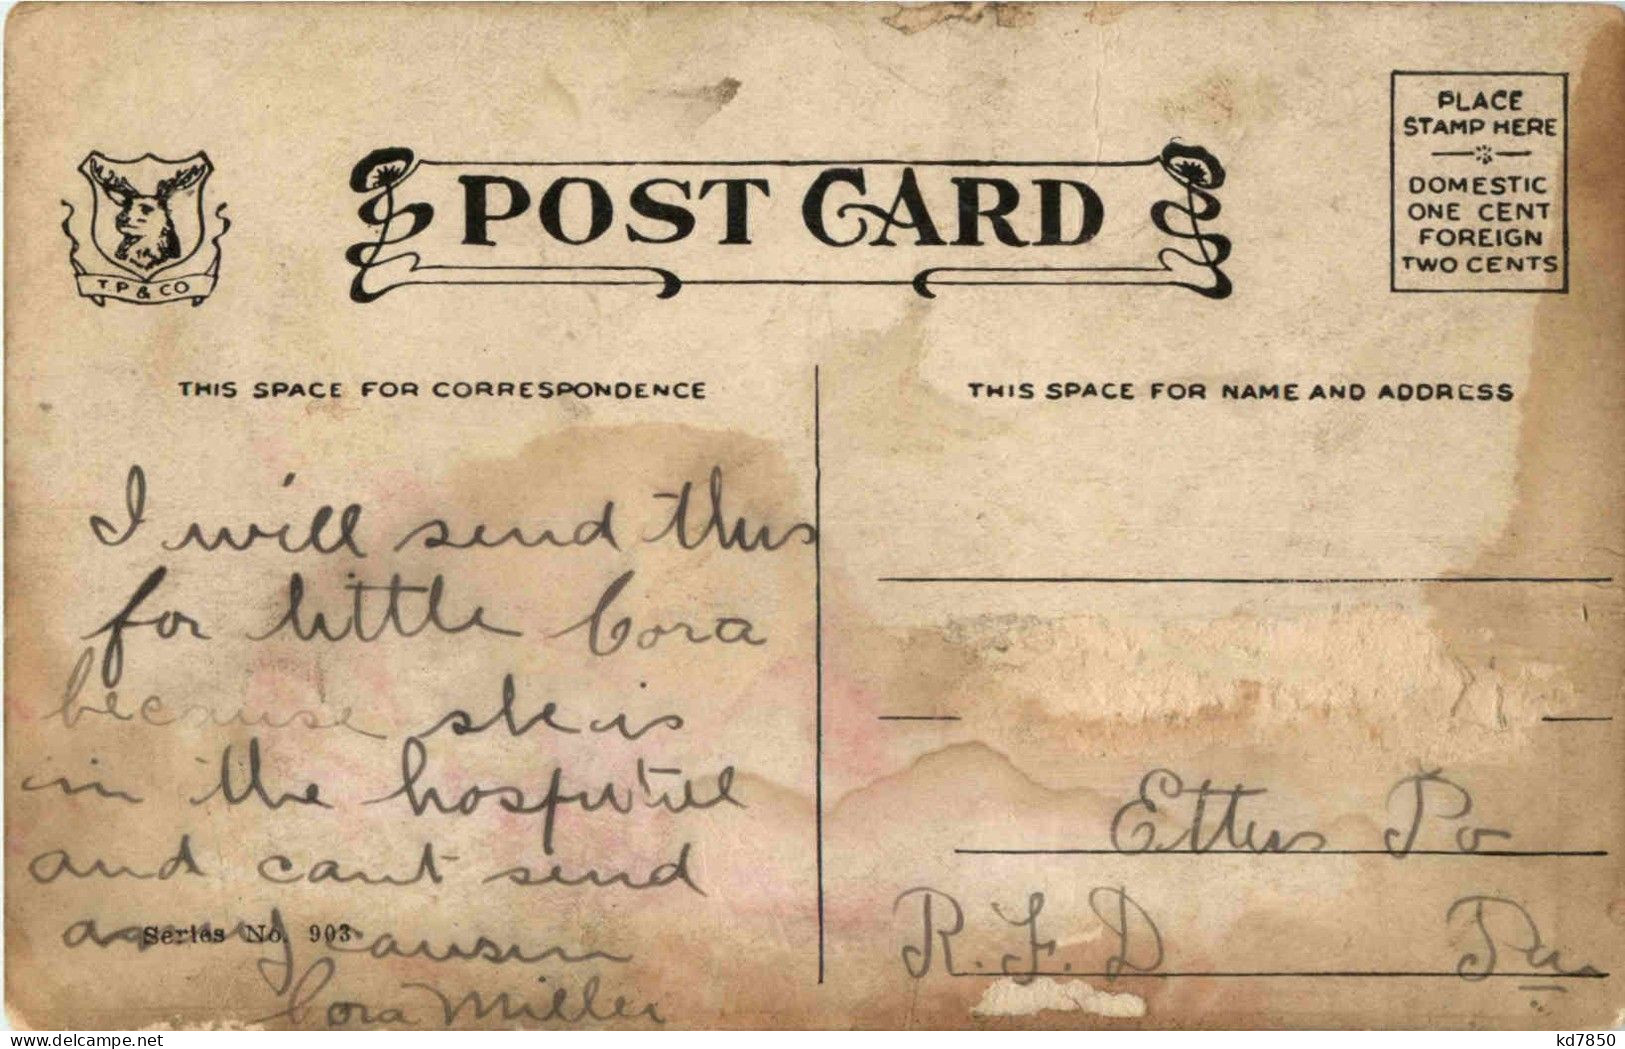 POST CARD
T P & CO
PLACE
STAMP HERE
DOMESTIC
ONE CENT
FOREIGN
TWO CENTS
THIS SPACE FOR CORRESPONDENCE
I will send this
for little Cora
because she is
in the hospital
and cant send
any cousin
Series No. 903
Cora Miller
THIS SPACE FOR NAME AND ADDRESS
Etters Po
R.F.D Pa
kd7850